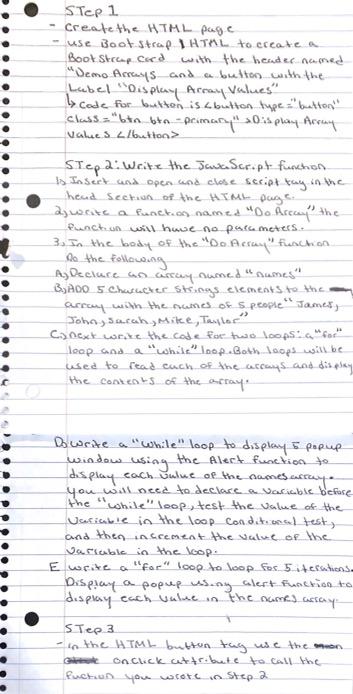 STep 1
- Create the HTML page
- use Boot strap / HTML to create a
Boot Strap Card with the header named
"Demo Arrays and a button with the
Label "Display Array Values"
↳ code for button is <button type="button"
class="btn btn-primary">Display Array
Values </button>
STep 2: Write the JavaScript function
1) Insert and open and close script tag in the
head section of the HTML page.
2) write a function named "Do Array" the
function will have no parameters.
3. In the body of the "Do Array" function
Do the following
A) Declare an array named "names"
B) ADD 5 character strings elements to the
array with the names of 5 people "James,
John, Sarah, Mike, Taylor"
C) next write the code for two loops: a "for"
loop and a "while" loop. Both loops will be
used to read each of the arrays and display
the contents of the array.
D) write a "while" loop to display 5 popup
window using the Alert function to
display each value of the names array.
you will need to declare a variable before
the "while" loop, test the value of the
variable in the loop conditional test,
and then increment the value of the
variable in the loop.
E write a "for" loop to loop for 5 iterations.
Display a popup using alert function to
display each value in the names array.
STep 3
- in the HTML button tag use the
onclick attribute to call the
fuction you wrote in Step 2